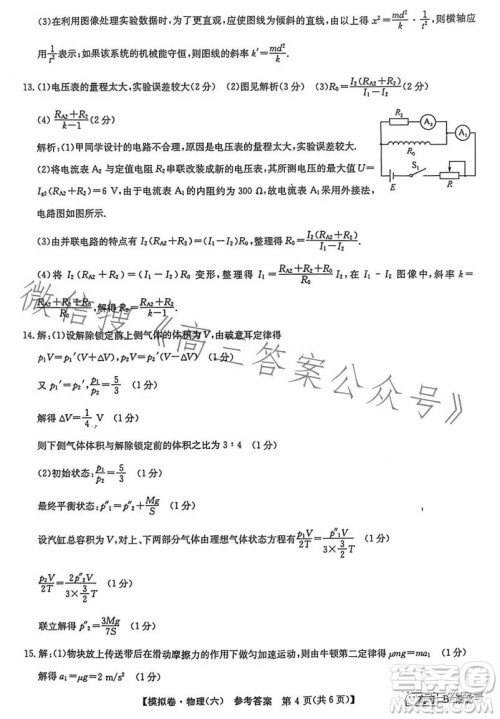 (3)在利用图像处理实验数据时,为使图线为倾斜的直线,由以上得 x²=md²/k · 1/t²,则横轴应
用1/t²表示;如果该系统的机械能守恒,则图线的斜率 k′=md²/k.
13.(1)电压表的量程太大,实验误差较大(2分) (2)图见解析(3分) (3)R₀=I₂(R_A2+R₂)/(I₁-I₂)(2分)
(4)(R_A2+R₂)/(k-1)(2分)
解析:(1)甲同学设计的电路不合理,原因是电压表的量程太大,实验误差较大.
(2)将电流表 A₂ 与定值电阻 R₂ 串联改装成新的电压表,改装后的最大量程 U=
I_g2(R_A2+R₂)=6 V,由于电流表 A₁ 的内阻约为 300 Ω,故电流表 A₁ 采用外接法,
电路图如图所示.
R₂
A₂
R₀
A₁
E
S₁
R
(3)由并联电路的特点有 I₂(R_A2+R₂)=(I₁-I₂)R₀,整理得 R₀=I₂(R_A2+R₂)/(I₁-I₂).
(4)将 I₂(R_A2+R₂)=(I₁-I₂)R₀ 变形,整理得 I₁=(R_A2+R₂+R₀)/R₀ I₂,在 I₁-I₂ 图像中,斜率 k=
(R_A2+R₂+R₀)/R₀,解得 R₀=(R_A2+R₂)/(k-1).
14.解:(1)设解除锁定前上侧气体的体积为 V,由玻意耳定律得
p₁V=p₁′(V+ΔV) (1分)
p₂V=p₂′(V-ΔV) (1分)
又 p₁′=p₂′,p₁/p₂=5/3 (1分)
解得 ΔV=1/4 V (1分)
则下侧气体体积与解除锁定前的体积之比为 3∶4 (1分)
(2)初始状态:p₁/p₂=5/3 (1分)
最终平衡状态:p″₁=p″₂+Mg/S (1分)
设汽缸总容积为 V,对上、下两部分气体由理想气体状态方程有 p₁V/2T=p″₁V/(3×3/2 T) (1分)
p₂V/2T=2p″₂V/(3×3/2 T) (1分)
联立解得 p″₂=3Mg/7S (1分)
15.解:(1)物块放上传送带后在滑动摩擦力的作用下做匀加速运动,由牛顿第二定律得 μmg=ma₁ (1分)
解得 a₁=μg=2 m/s² (1分)
【模拟卷·物理(六) 参考答案 第4页(共6页)】
微信搜《高三答案公众号》